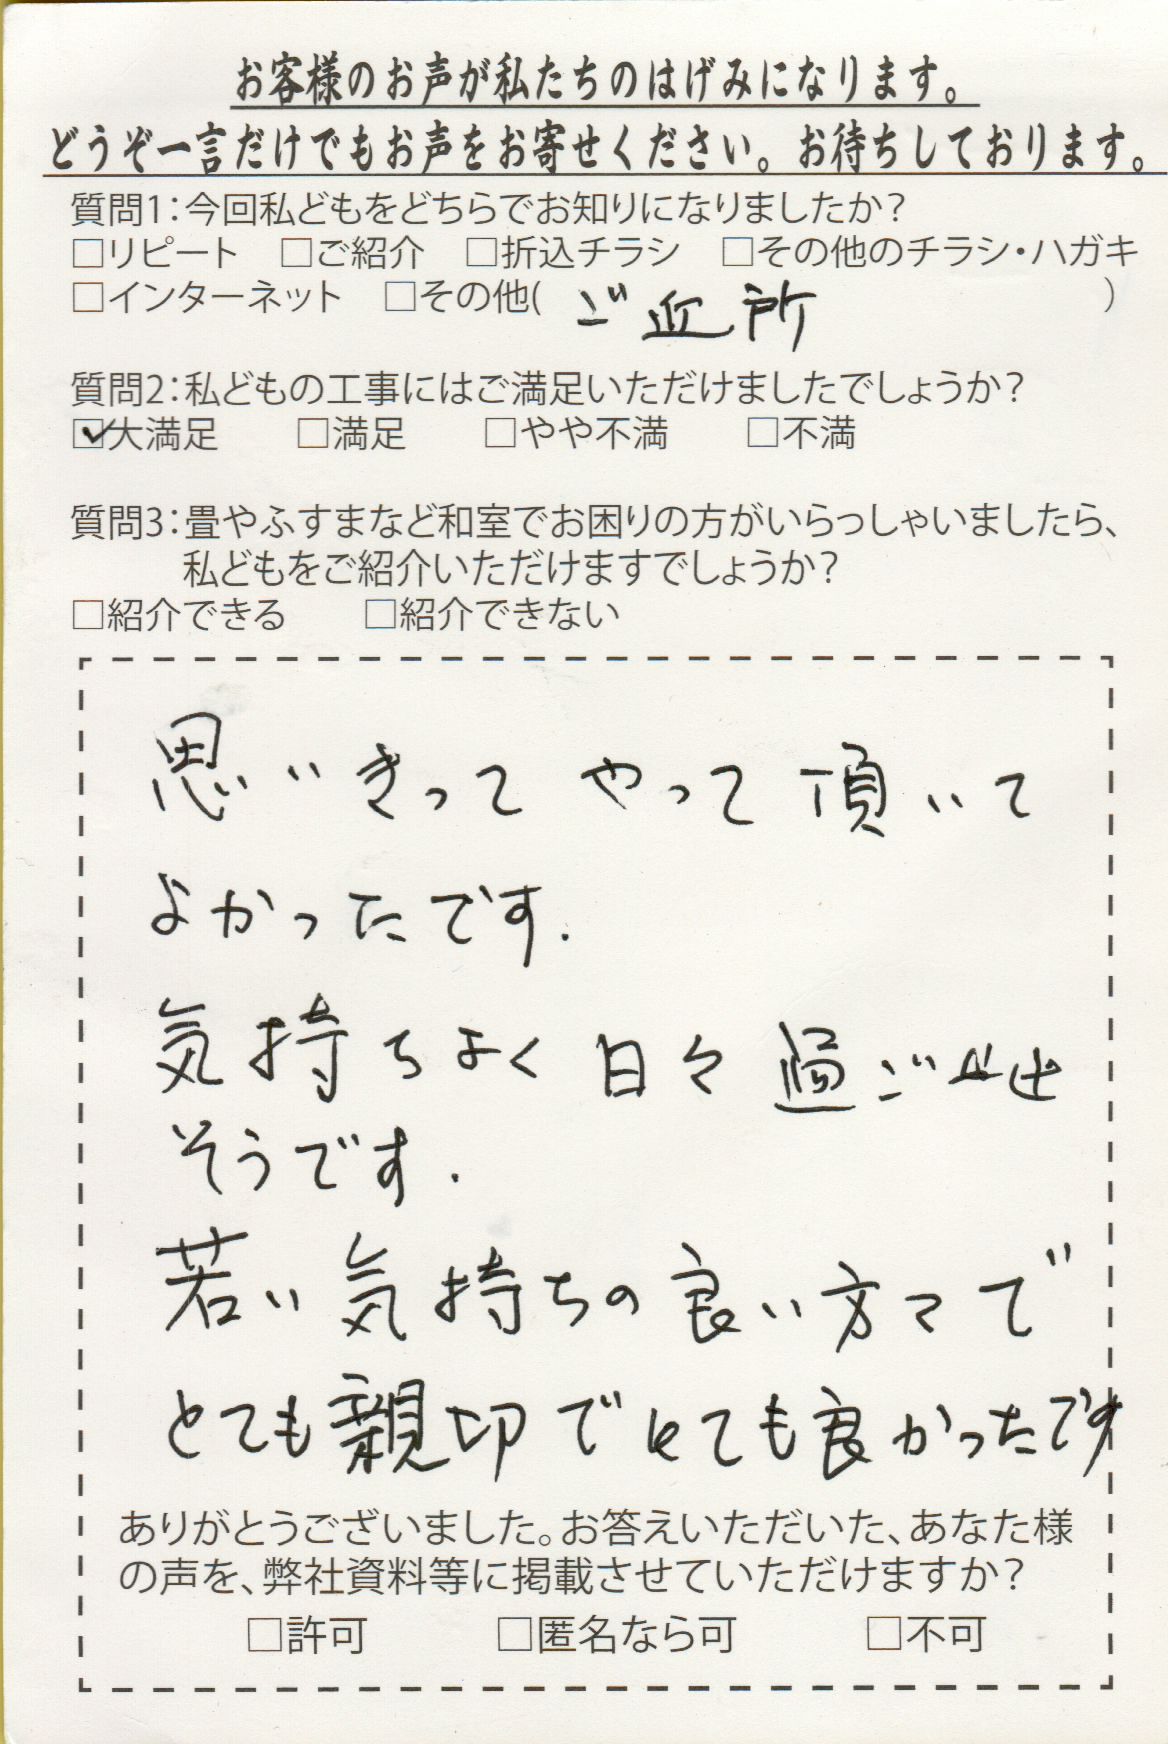 お客様のお声が私たちのはげみになります。
どうぞ一言だけでもお声をお寄せください。お待ちしております。
質問1:今回私どもをどちらでお知りになりましたか?
□リピート □ご紹介 □折込チラシ □その他のチラシ・ハガキ
□インターネット □その他( ご近所 )
質問2:私どもの工事にはご満足いただけましたでしょうか?
☑大満足 □満足 □やや不満 □不満
質問3:畳やふすまなど和室でお困りの方がいらっしゃいましたら、
私どもをご紹介いただけますでしょうか?
□紹介できる □紹介できない
思いきって やって頂いて
よかったです.
気持ちよく 日々 過ごせ
そうです.
若い気持ちの良い方々で
とても親切でとても良かったです
ありがとうございました。お答えいただいた、あなた様
の声を、弊社資料等に掲載させていただけますか?
□許可 □匿名なら可 □不可